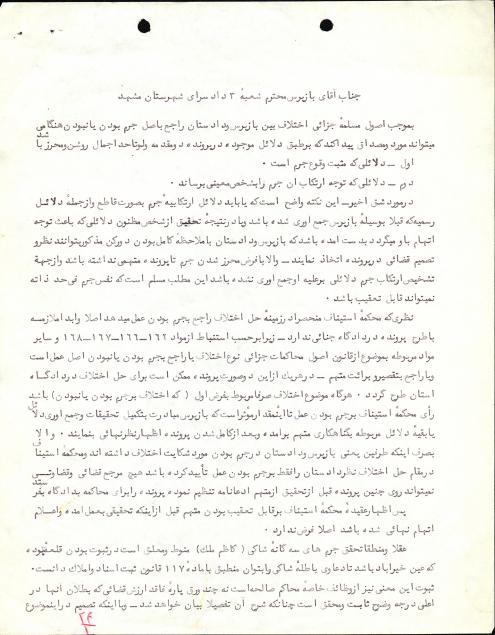 جناب آقای بازپرس محترم شعبه ۳ دادسرای شهرستان مشهد
بموجب اصول مسلمه جزائی اختلاف بین بازپرس و دادستان راجع باصل جرم بودن یا نبودن هنگامی
میتواند مورد و مصداق پیدا کند که بر طبق دلائل موجوده در پرونده دو مقدمه ولو تا حد اجمال روشن و محرز باشد
اول ــ دلائلی که مثبت وقوع جرم است .
دوم ــ دلائلی که توجه ارتکاب آن جرم را بشخص معینی برساند .
در مورد شق اخیر ــ این نکته واضح است که باید دلائل ارتکابیه جرم بصورت قاطع و از جمله دلائل
رسمیه که قبلا بوسیله بازپرس جمع آوری شده باشد و یا در نتیجه تحقیق از شخص مظنون دلائلی که باعث توجه
اتهام باو میگردد بدست آمده باشد که بازپرس و دادستان با ملاحظه کامل بودن دو رکن مذکور بتوانند نظر و
تصمیم قضائی در پرونده اتخاذ نمایند ــ والا بافرض محرز شدن جرم تا پرونده متهمی نداشته باشد و از جهة
تشخیص ارتکاب جرم دلائلی بر علیه او جمع آوری نشده باشد این مطلب مسلم است که نفس جرم فی حد ذاته
نمیتواند قابل تعقیب باشد .
نظری که محکمه استیناف منحصرا در زمینه حل اختلاف راجع بجرم بودن عمل میدهد اصلا و ابدا ملازمه
با طرح پرونده در دادگاه جنائی ندارد ــ زیرا بر حسب استنباط از مواد ۱۶۲ــ۱۶۶ــ۱۶۷ــ۱۶۸ و سایر
مواد مربوطه بموضوع از قانون اصول محاکمات جزائی نوع اختلاف یا راجع بجرم بودن یا نبودن اصل عمل است
و یا راجع بتقصیر و برائت متهم ــ در هریک از این دو صورت پرونده ممکن است برای حل اختلاف در دادگاه
استان طرح گردد . هرگاه موضوع اختلاف صرفا مربوط بفرض اول ( که اختلاف بر جرم بودن یا نبودن ) باشد
رأی محکمه استیناف بر جرم بودن عمل تا اینقدر موثر است که بازپرس مبادرت بتکمیل تحقیقات و جمع آوری دلائل
یا بقیه دلائل مربوطه بگناهکاری متهم برآمده و بعد از کامل شدن پرونده اظهار نظر نهائی بنمایند . والا
بصرف اینکه طرفین یعنی بازپرس و دادستان در جرم بودن مورد شکایت اختلاف داشته اند و محکمه استیناف
در مقام حل اختلاف نظر دادستان را فقط بر جرم بودن عمل تأیید کرده باشد هیچ مرجع قضائی و قضاوتی
نمیتواند روی چنین پرونده قبل از تحقیق از متهم ادعانامه تنظیم نموده پرونده را برای محاکمه بدادگاه بفرستد
پس اظهار عقیده محکمه استیناف بر قابل تعقیب بودن متهم قبل از اینکه تحقیقی بعمل آمده و اعلام
اتهام نهائی شده باشد اصلا فرض ندارد .
عقلا و منطقا تحقق جرم های سه گانه شاکی ( کاظم ملك ) منوط و معلق است در ثبوت بودن قلعه نوده
که عین خیرآباد باشد تا دعاوی باطله شاکی را بتوان منطبق با ماده ۱۱۷ قانون ثبت اسناد و املاك دانست .
ثبوت این معنی نیز از وظائف خاصه محاکم صالحه است نه چند ورق پاره فاقد ارزش قضائی که بطلان آنها در
اعلی درجه وضوح ثابت و محقق است چنانکه شرح آن تفصیلا بیان خواهد شد ــ و با اینکه تصمیم در اینموضوع